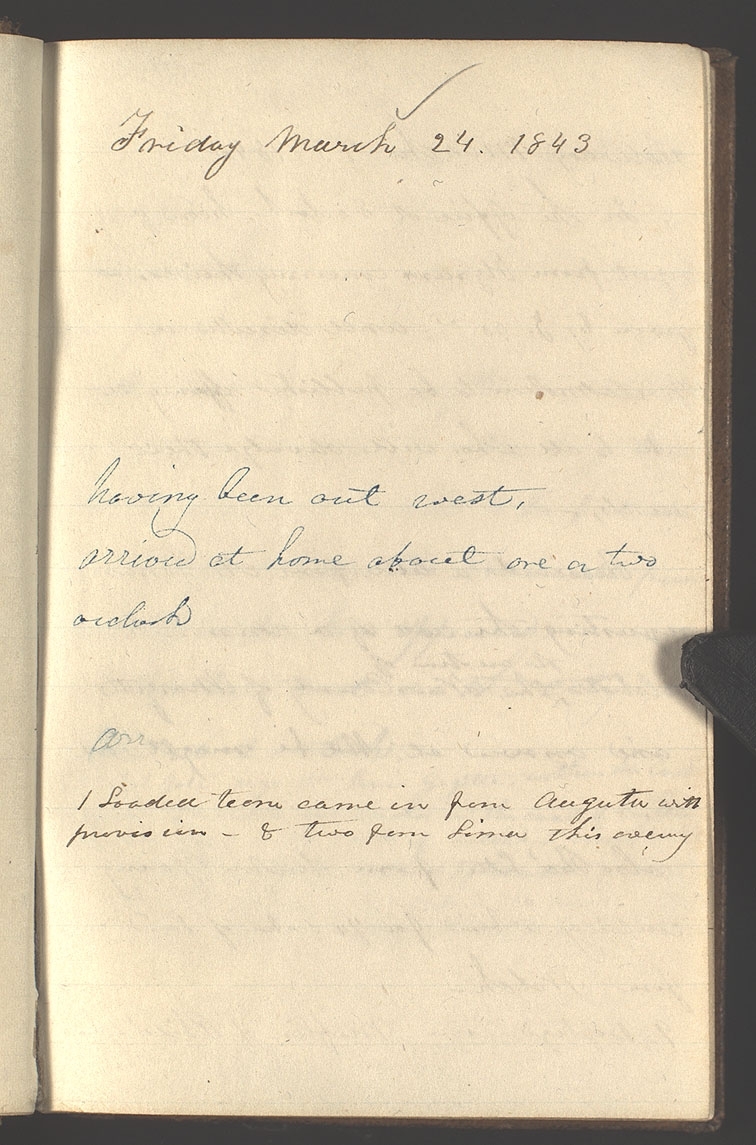 Friday March 24. 1843
having been out west,
arrived at home about one or two
oclock
arr
1 Loaded team came in from Augusta with
provision - & two from Lima this eveng